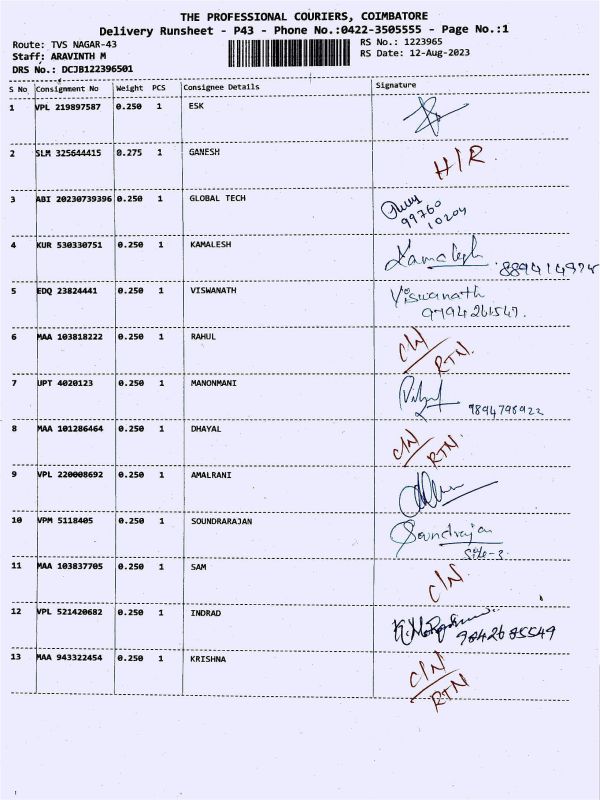 THE PROFESSIONAL COURIERS, COIMBATORE
Delivery Runsheet - P43 - Phone No.:0422-3505555 - Page No.:1
Route: TVS NAGAR-43 RS No.: 1223965
Staff: ARAVINTH M RS Date: 12-Aug-2023
DRS No.: DCJB122396501
S No Consignment No Weight PCS Consignee Details Signature
1 VPL 219897587 0.250 1 ESK
2 SLM 325644415 0.275 1 GANESH H/R
3 ABI 20230739396 0.250 1 GLOBAL TECH
99760
10204
4 KUR 530330751 0.250 1 KAMALESH Kamalesh
5 EDQ 23824441 0.250 1 VISWANATH Viswanath
9794261547.
6 MAA 103818222 0.250 1 RAHUL C/N
RTN.
7 UPT 4020123 0.250 1 MANONMANI
9894798922
8 MAA 101286464 0.250 1 DHAYAL C/N
RTN.
9 VPL 220008692 0.250 1 AMALRANI
10 VPM 5118405 0.250 1 SOUNDRARAJAN Soundrajan
11 MAA 103837705 0.250 1 SAM C/N
12 VPL 521420682 0.250 1 INDRAD
9842685549
13 MAA 943322454 0.250 1 KRISHNA C/N
RTN